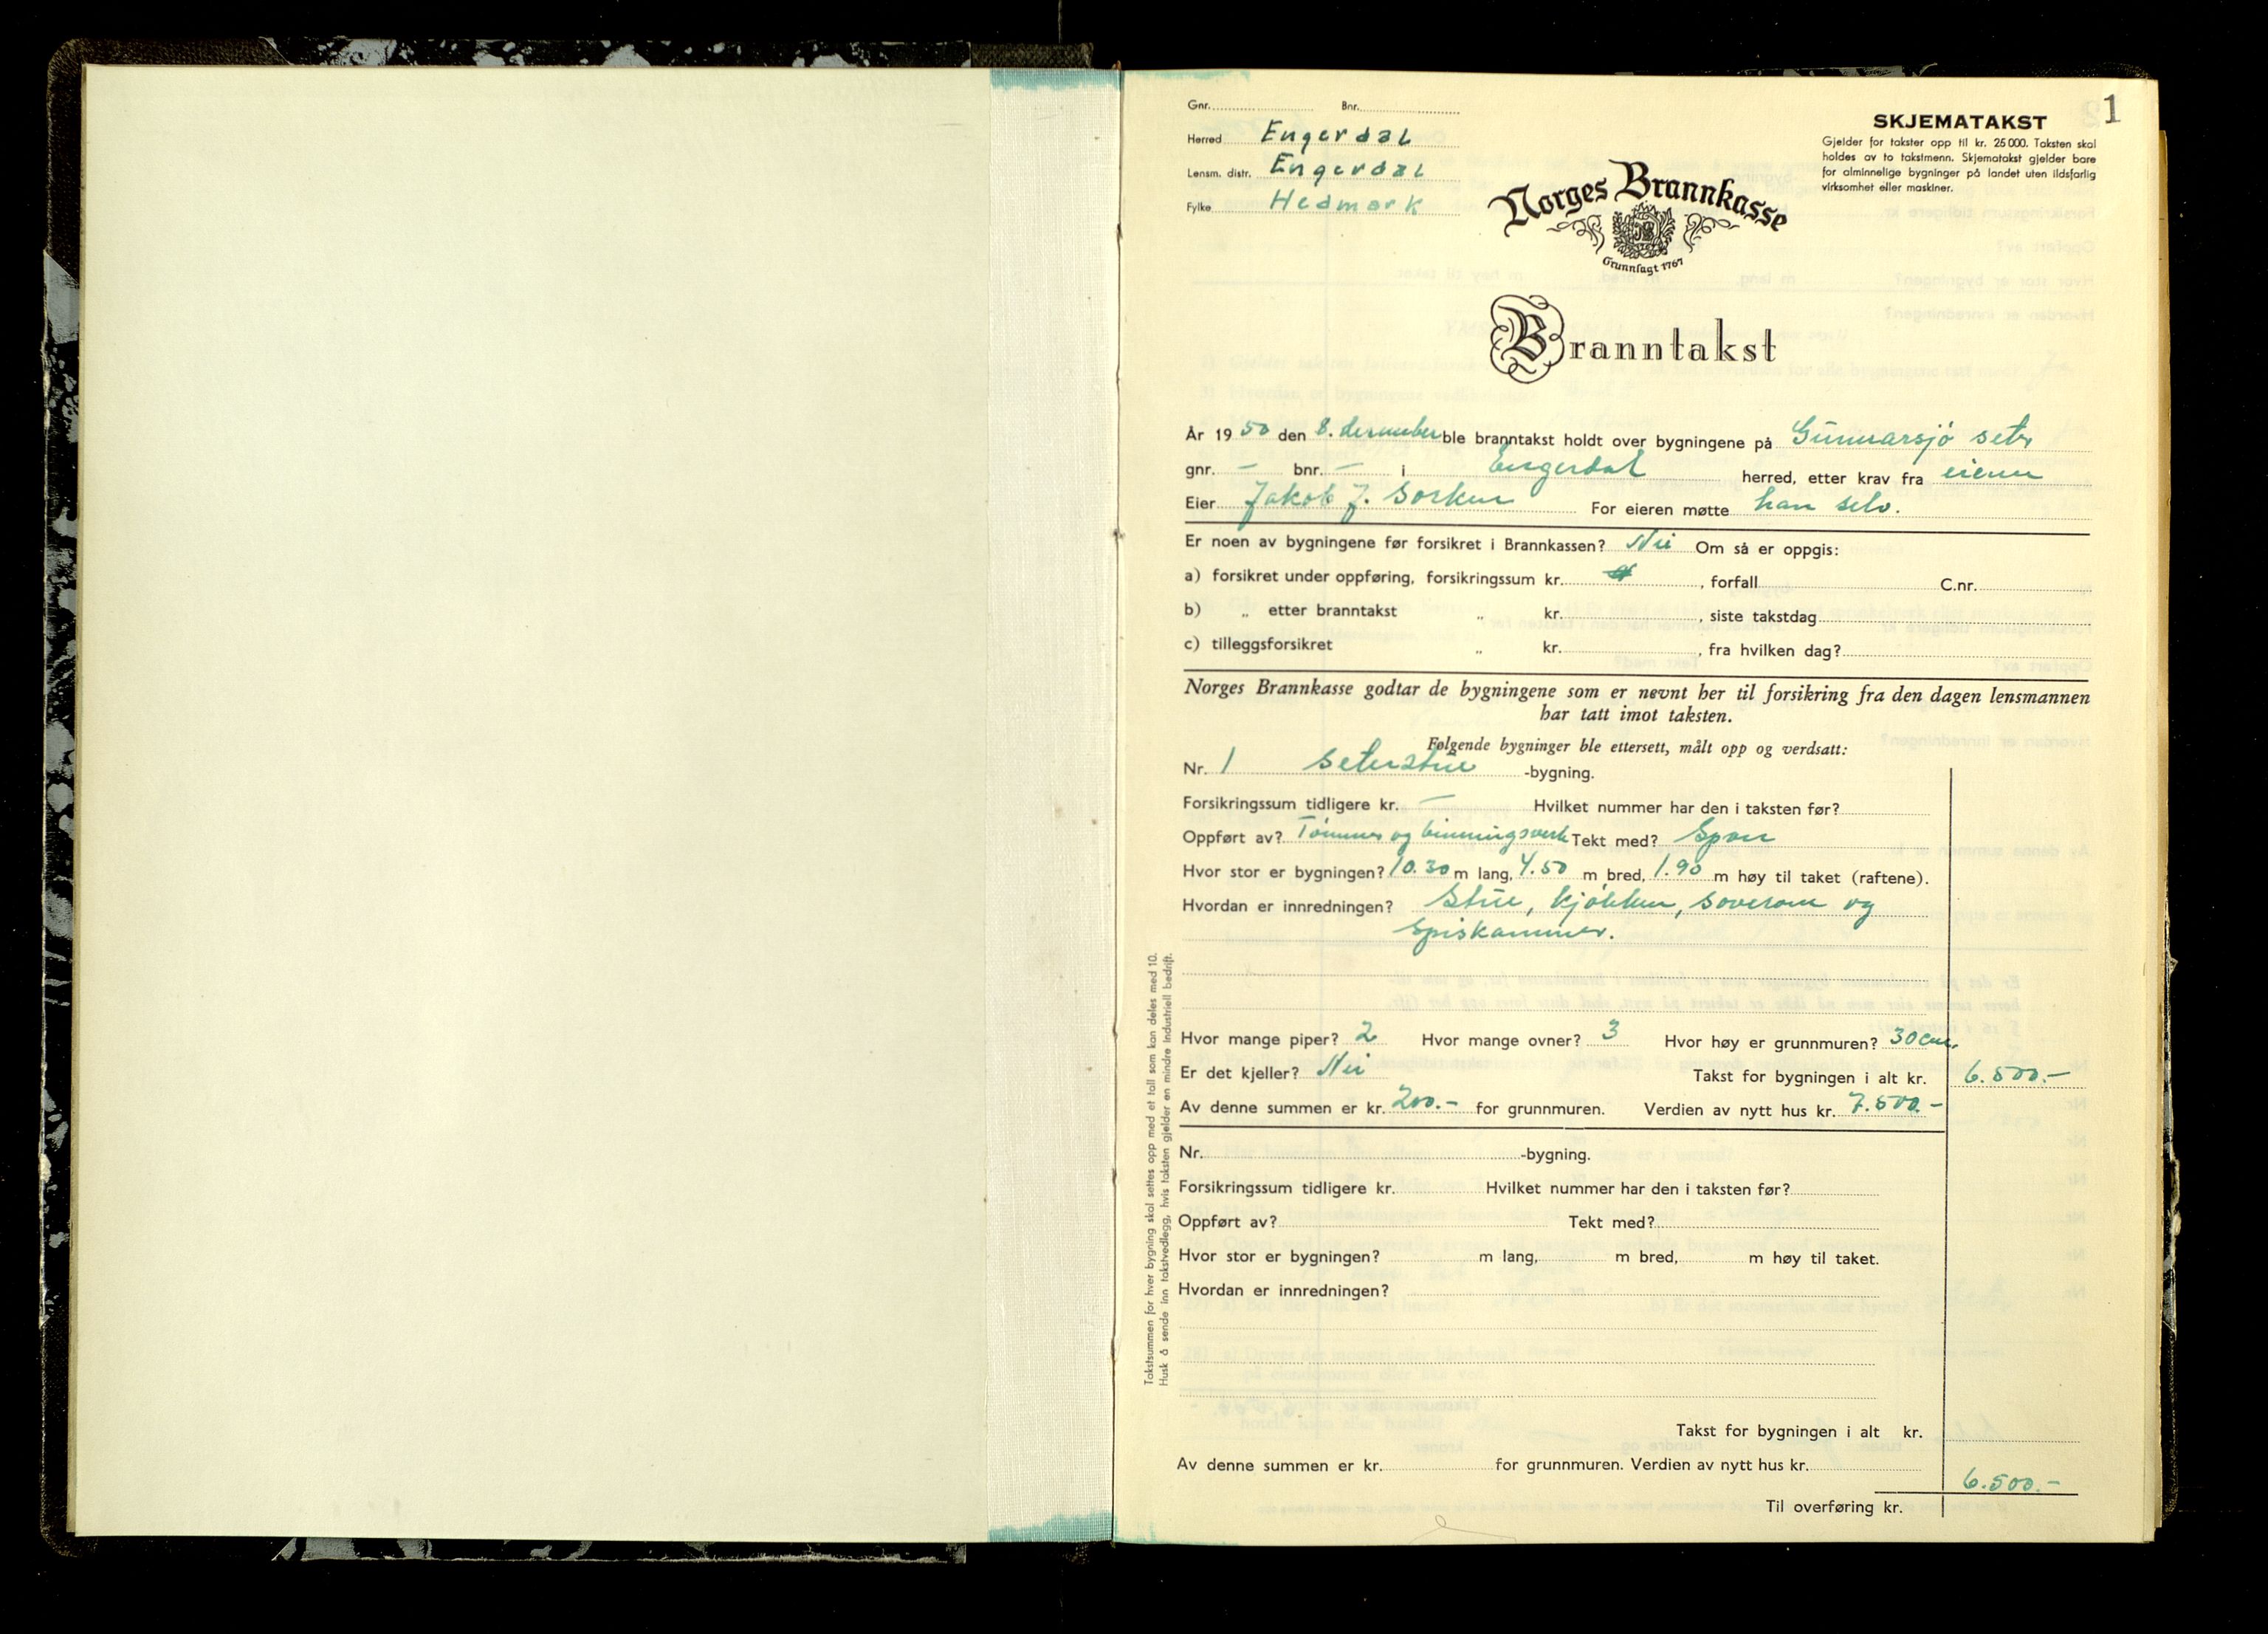 1
Gnr. Bnr.
Herred Engerdal
Lensm. distr. Engerdal
Fylke Hedmark
SKJEMATAKST
Gjelder for takster opp til kr. 25 000. Taksten skal
holdes av to takstmenn. Skjematakst gjelder bare
for alminnelige bygninger på landet uten ildsfarlig
virksomhet eller maskiner.
Norges Brannkasse
Grunnlagt 1767
Branntakst
År 1950 den 8. desember ble branntakst holdt over bygningene på Gunnarsjø seter
gnr. – bnr. – i Engerdal herred, etter krav fra eieren
Eier Jakob J. Sorken For eieren møtte han selv.
Er noen av bygningene før forsikret i Brannkassen? Nei Om så er oppgis:
a) forsikret under oppføring, forsikringssum kr. , forfall C.nr.
b) „ etter branntakst „ kr. , siste takstdag
c) tilleggsforsikret „ kr. , fra hvilken dag?
Norges Brannkasse godtar de bygningene som er nevnt her til forsikring fra den dagen lensmannen
har tatt imot taksten.
Følgende bygninger ble ettersett, målt opp og verdsatt:
Nr. 1 Seterstue -bygning.
Forsikringssum tidligere kr. – Hvilket nummer har den i taksten før?
Oppført av? Tømmer og binningsverk Tekt med? Spon
Hvor stor er bygningen? 10.30 m lang, 4.50 m bred, 1.90 m høy til taket (raftene).
Hvordan er innredningen? Stue, kjøkken, soverom og
Spiskammer.
Hvor mange piper? 2 Hvor mange ovner? 3 Hvor høy er grunnmuren? 30 cm.
Er det kjeller? Nei Takst for bygningen i alt kr. 6.500.–
Av denne summen er kr. 200.– for grunnmuren. Verdien av nytt hus kr. 7.500.–
Nr. -bygning.
Forsikringssum tidligere kr. Hvilket nummer har den i taksten før?
Oppført av? Tekt med?
Hvor stor er bygningen? m lang, m bred, m høy til taket.
Hvordan er innredningen?
Takst for bygningen i alt kr.
Av denne summen er kr. for grunnmuren. Verdien av nytt hus kr.
6.500.–
Til overføring kr.
Takstsummen for hver bygning skal settes opp med et tall som kan deles med 10.
Husk å sende inn takstvedlegg, hvis taksten gjelder en mindre industriell bedrift.